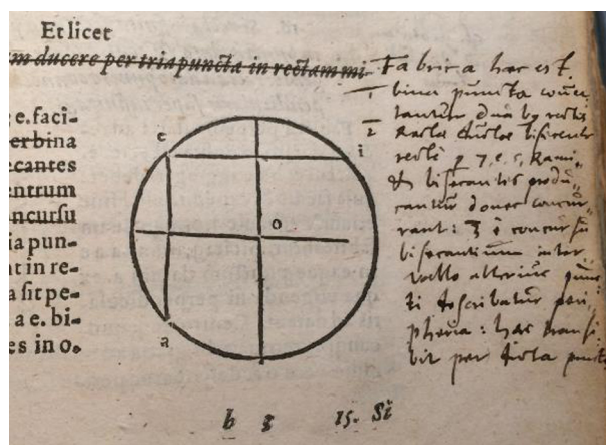 Et licet
m ducere per tria puncta in rectam mi-
; e. faci-
er bina
ecantes
entrum
oncursu
ia pun-
at in re-
a sit pe-
a e. bi-
es in o.
e
i
o
a
Fabrica hæc est.
1 bina puncta
tantur rectis
2 Rectæ ductæ bisecentur
recte p 7, e. 5, Rami
& bisecantes produ-
cantur donec concur-
rant: 3 è concursu
bisecantium inter-
vallo alterius punc-
ti describatur peri-
pheria: hæc transi-
bit per dicta punct
b 3 15. Si